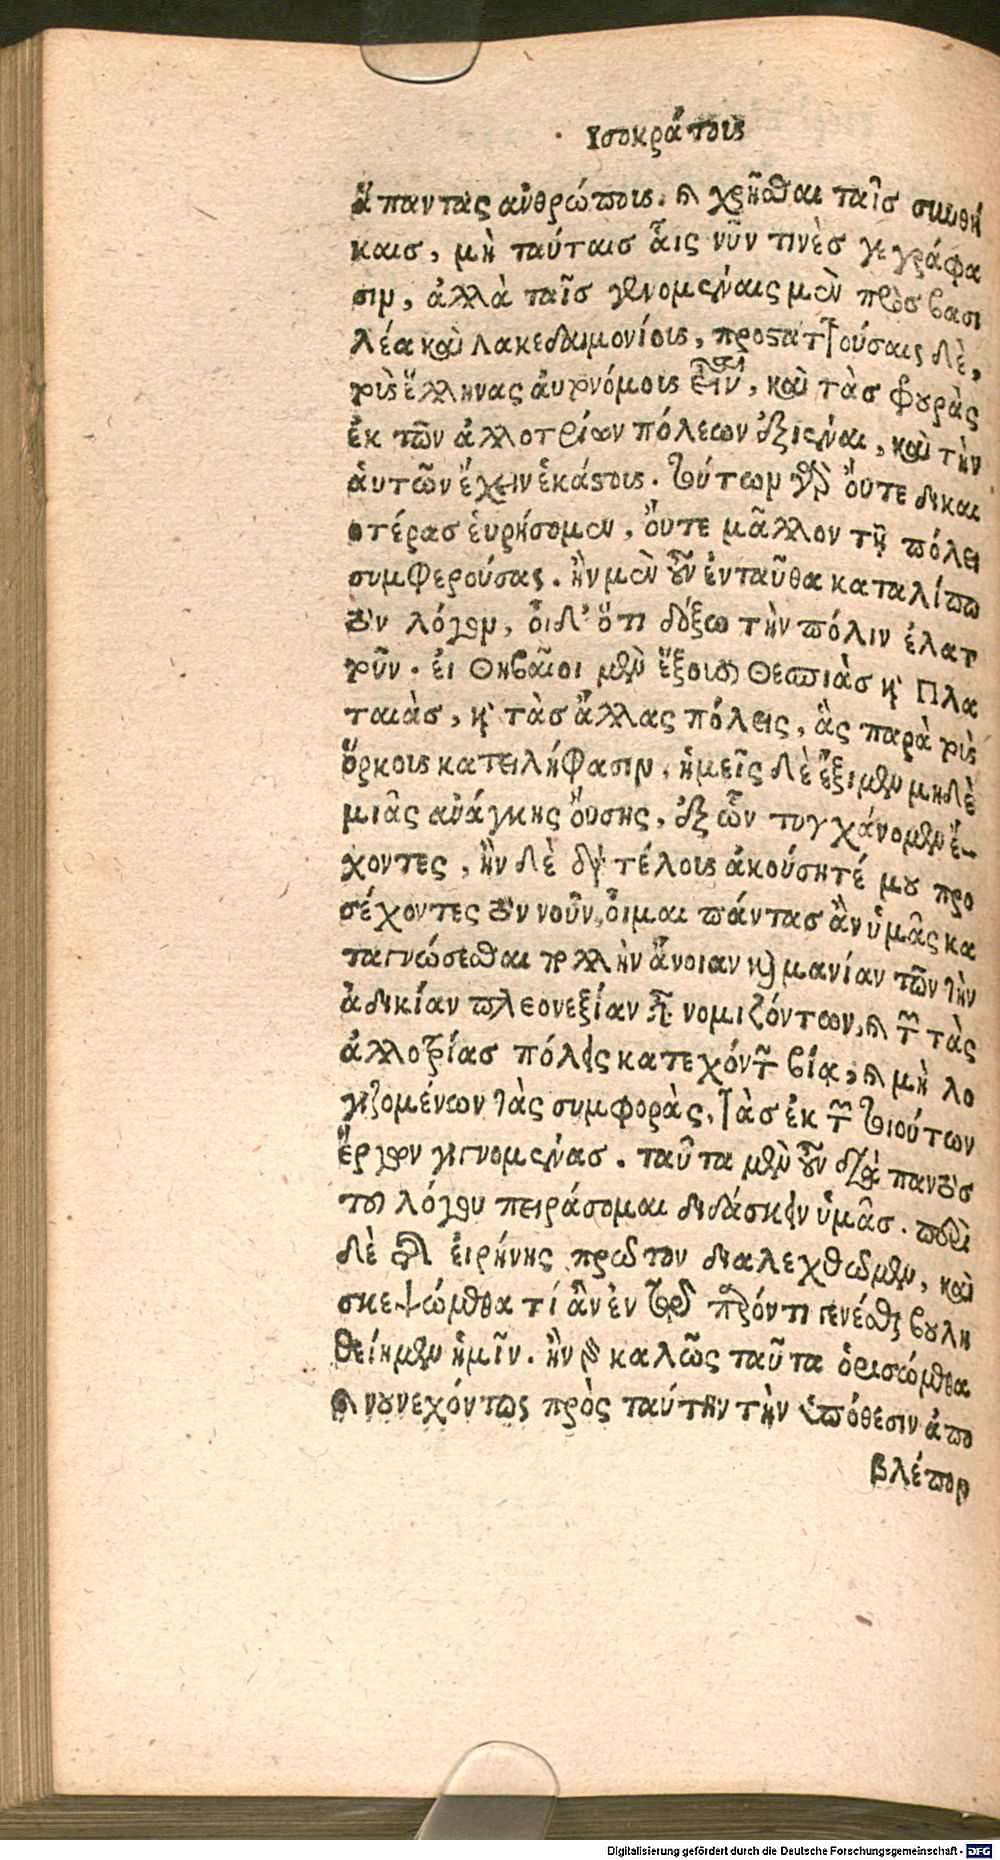 Ισοκράτους
ἅπαντας ἀνθρώπους. καὶ χρῆσθαι ταῖς συνθή
καις, μὴ ταύταις αἷς νῦν τινὲς γεγράφα
σιν, ἀλλὰ ταῖς γενομέναις μὲν πρὸς βασι
λέα καὶ λακεδαιμονίους, προστατ͂τούσαις δὲ,
τοὺς ἕλληνας αὐτονόμους εἶναι, καὶ τὰς φρουρὰς
ἐκ τῶν ἀλλοτρίων πόλεων ἐξιέναι, καὶ τὴν
ἁυτῶν ἔχειν ἑκάστους. τούτων γὰρ ὄυτε δικαι
οτέρας ἑυρήσομεν, ὄυτε μᾶλλον τῇ πόλει
συμφερούσας. ἢν μὲν οὖν ἐνταῦθα καταλίπω
τὸν λόγον, οἶδ' ὅτι δόξω τὴν πόλιν ἐλατ
τοῦν. ἐι Θηβαῖοι μὲν ἕξουσι Θεσπιὰς καὶ Πλα
ταιὰς, καὶ τὰς ἄλλας πόλεις, ἃς παρὰ τοὺς
ὅρκους κατειλήφασιν, ἡμεῖς δὲ ἔξιμεν μηδὲ
μιᾶς ἀνάγκης ὄυσης, ἐξ ὧν τυγχάνομεν ἔ-
χοντες, ἢν δὲ διὰ τέλους ἀκούσητέ μου προ
σέχοντες τὸν νοῦν, οἶμαι πάντας ἂν ὑμᾶς κα
ταγνώσεσθαι πολλὴν ἄνοιαν καὶ μανίαν τῶν τὴν
ἀδικίαν πλεονεξίαν εἶναι νομιζόντων, καὶ τῶν τὰς
ἀλλοτρίας πόλεις κατεχόντων βίᾳ, καὶ μὴ λο
γιζομένων τὰς συμφορὰς, τὰς ἐκ τῶν τοιούτων
ἔργων γιγνομένας. ταῦτα μὲν οὖν διὰ παντὸς
τοῦ λόγου πειράσομαι διδάσκειν ὑμᾶς. περὶ
δὲ τῆς ἐιρήνης πρῶτον διαλεχθῶμεν, καὶ
σκεψώμεθα τί ἂν ἐν τῷ παρόντι γενέσθαι βουλη
θείημεν ἡμῖν. ἢν γὰρ καλῶς ταῦτα ὁρισώμεθα
καὶ νουνεχόντως πρὸς ταύτην τὴν ὑπόθεσιν ἀπο
βλέπον